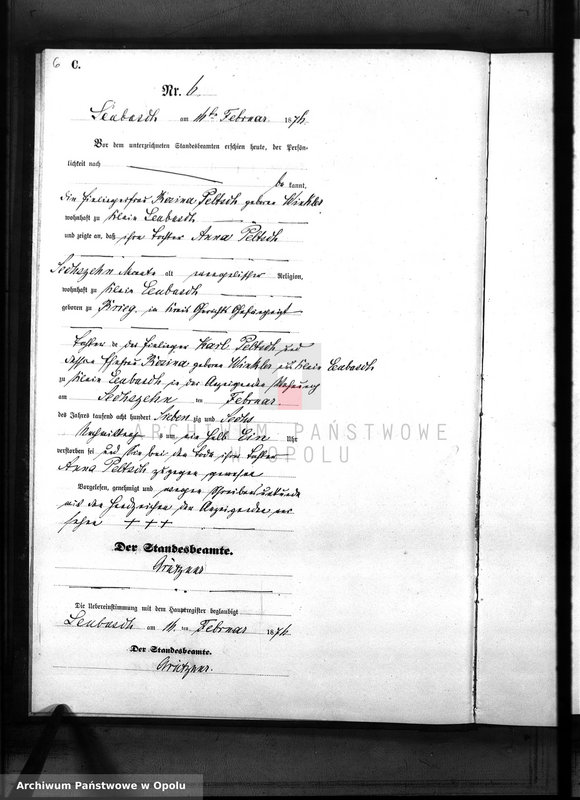 6 C.
Nr. 6
Leubusch am 16ten Februar 1876
Vor dem unterzeichneten Standesbeamten erschien heute, der Persön-
lichkeit nach
be kannt,
die Einliegerfrau Rosina Peltsch geborne Winkler
wohnhaft zu Klein Leubusch
und zeigte an, daß ihre Tochter Anna Peltsch
Sechszehn Monate alt evangelischer Religion,
wohnhaft zu Klein Leubusch
geboren zu Brieg, im Kreis Gerichts Gefängniß
Tochter des Einlieger Karl Peltsch und
dessen Ehefrau Rosina geborne Winkler zu Klein Leubusch
zu Klein Leubusch, in der Anzeigenden Wohnung
am Sechszehn ten Februar
des Jahres tausend acht hundert Sieben zig und Sechs
Nachmittags um ein halb Ein Uhr
verstorben sei und sie bei dem Tode ihrer Tochter
Anna Peltsch zugegen gewesen
Vorgelesen, genehmigt und wegen Schreibensunkunde
mit den Handzeichen der Anzeigenden ver
sehen + + +
Der Standesbeamte.
Die Uebereinstimmung mit dem Hauptregister beglaubigt
Leubusch am 16. ten Februar 1876
Der Standesbeamte.
ARCHIWUM PAŃSTWOWE
W OPOLU
Archiwum Państwowe w Opolu